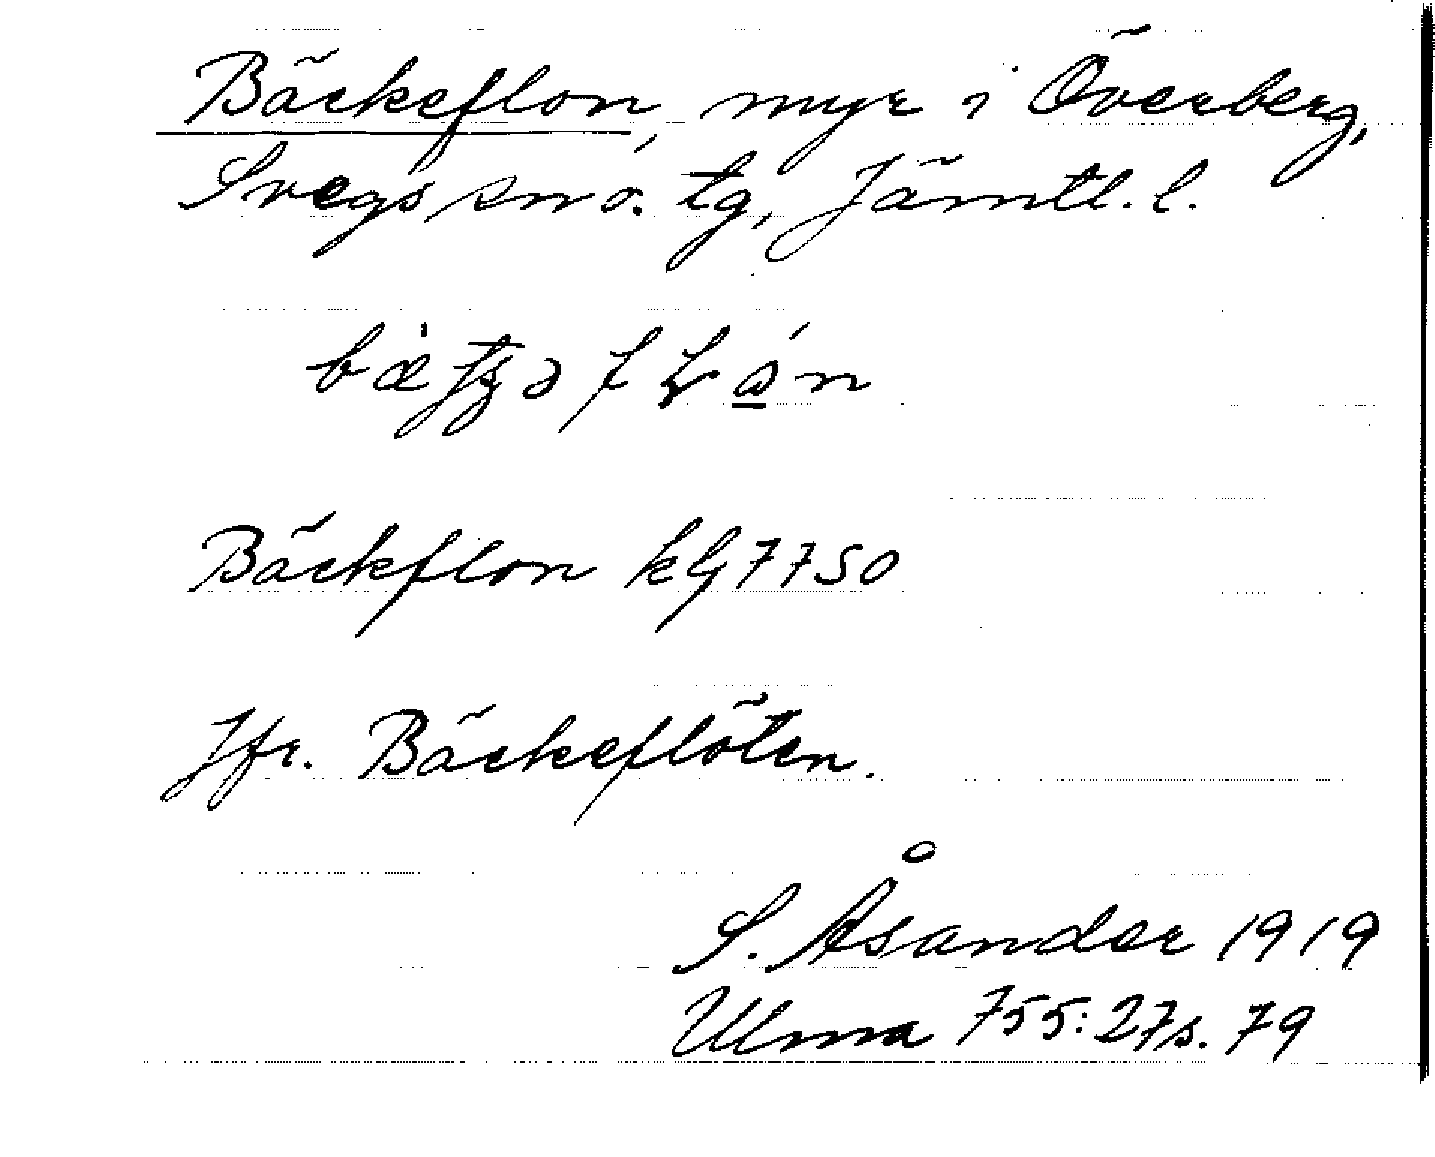 Bäckeflon, myr i Överberg,
Svegs sn o. tg, Jämtl. l.
Bäckflon kG 7750
Jfr. Bäckeflöten.
S. Åsander 1919
Ulma 755:27 s. 79